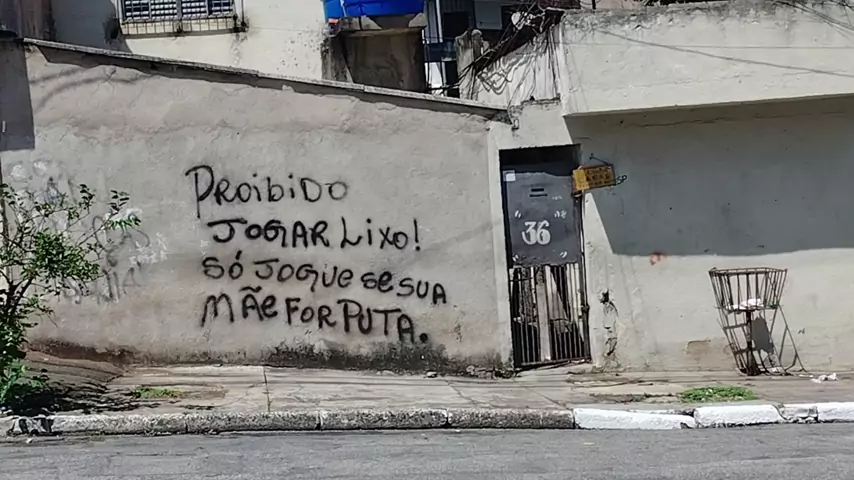 PROIBIDO
JOGAR LIXO!
SÓ JOGUE SE SUA
MÃE FOR PUTA.
36